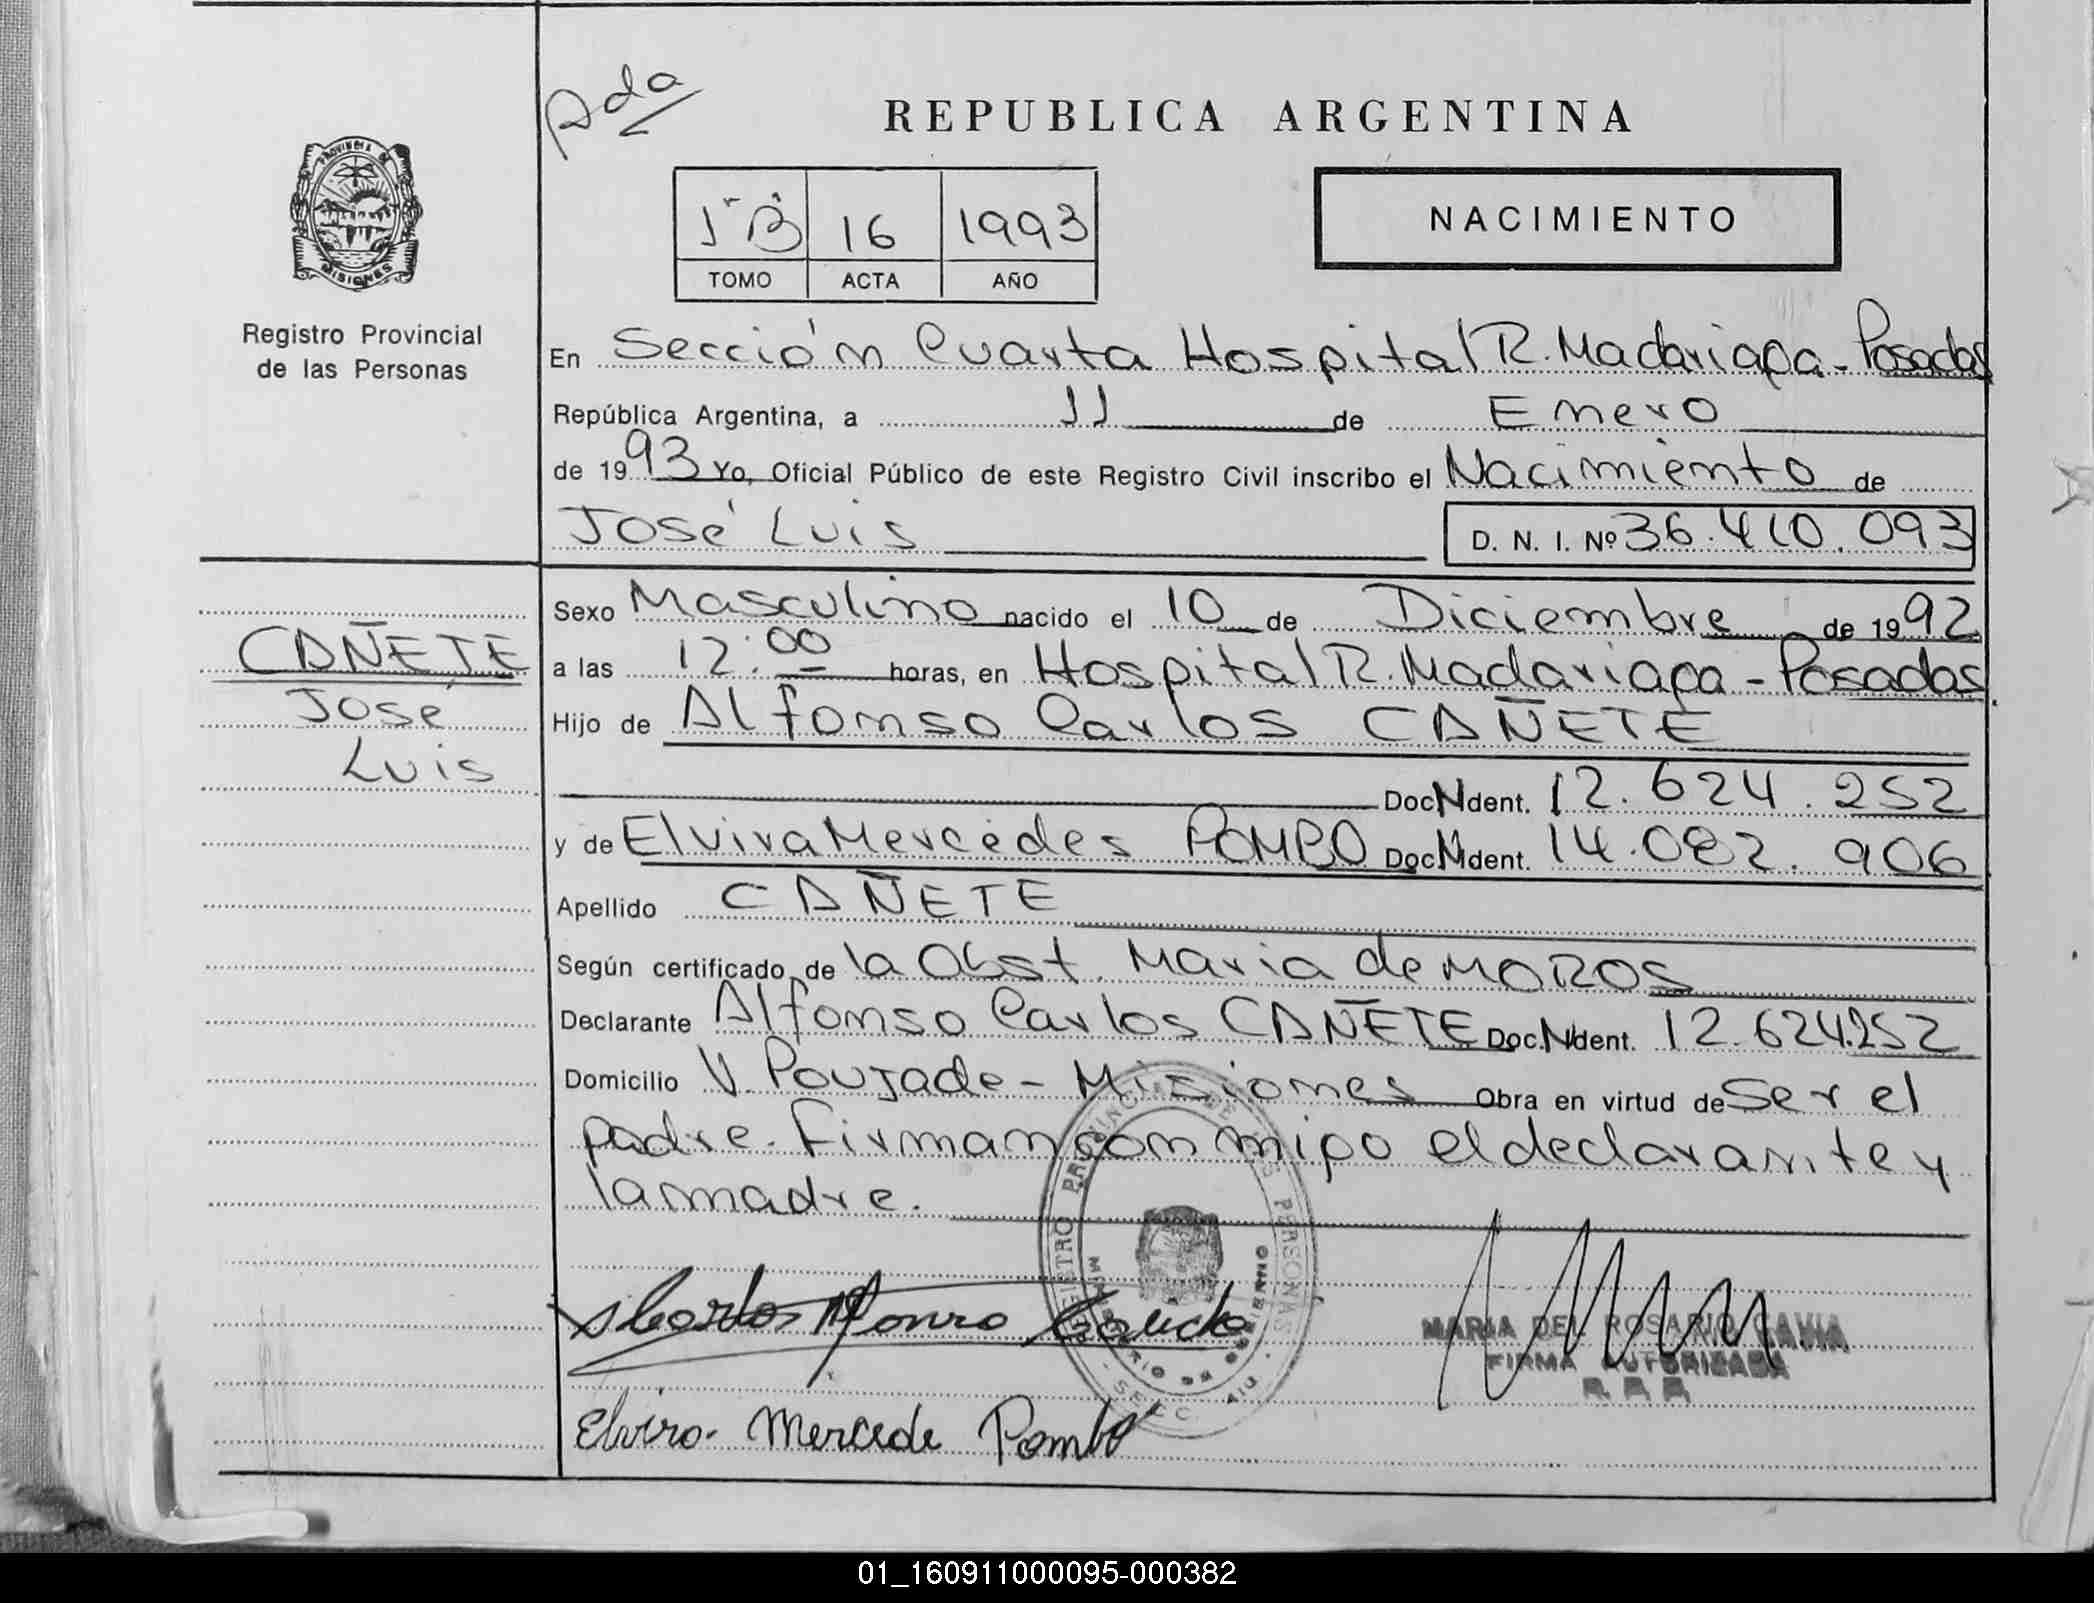 Pda
REPUBLICA ARGENTINA
PROVINCIA DE
MISIONES
1º B 16 1993
TOMO ACTA AÑO
NACIMIENTO
Registro Provincial
de las Personas
En Sección Cuarta Hospital R. Madariaga - Posadas
República Argentina, a 11 de Enero
de 1993 Yo, Oficial Público de este Registro Civil inscribo el Nacimiento de
José Luis D. N. I. Nº 36.410.093
Sexo Masculino nacido el 10 de Diciembre de 1992
CAÑETE
José
Luis
a las 12:00 horas, en Hospital R. Madariaga - Posadas
Hijo de Alfonso Carlos CAÑETE
Doc. N Ident. 12.624.252
y de Elvira Mercedes POMBO Doc. N Ident. 14.082.906
Apellido CAÑETE
Según certificado de la Obst. Maria de MOROS
Declarante Alfonso Carlos CAÑETE Doc. N Ident. 12.624.252
Domicilio V. Poujade - Misiones Obra en virtud de Ser el
padre. Firman conmigo el declarante y
la madre.
REGISTRO PROVINCIAL DE LAS PERSONAS
MINISTERIO DE GOBIERNO
MARIA DEL ROSARIO GAVIA
FIRMA AUTORIZADA
Elvira Mercede Pombo
01_160911000095-000382